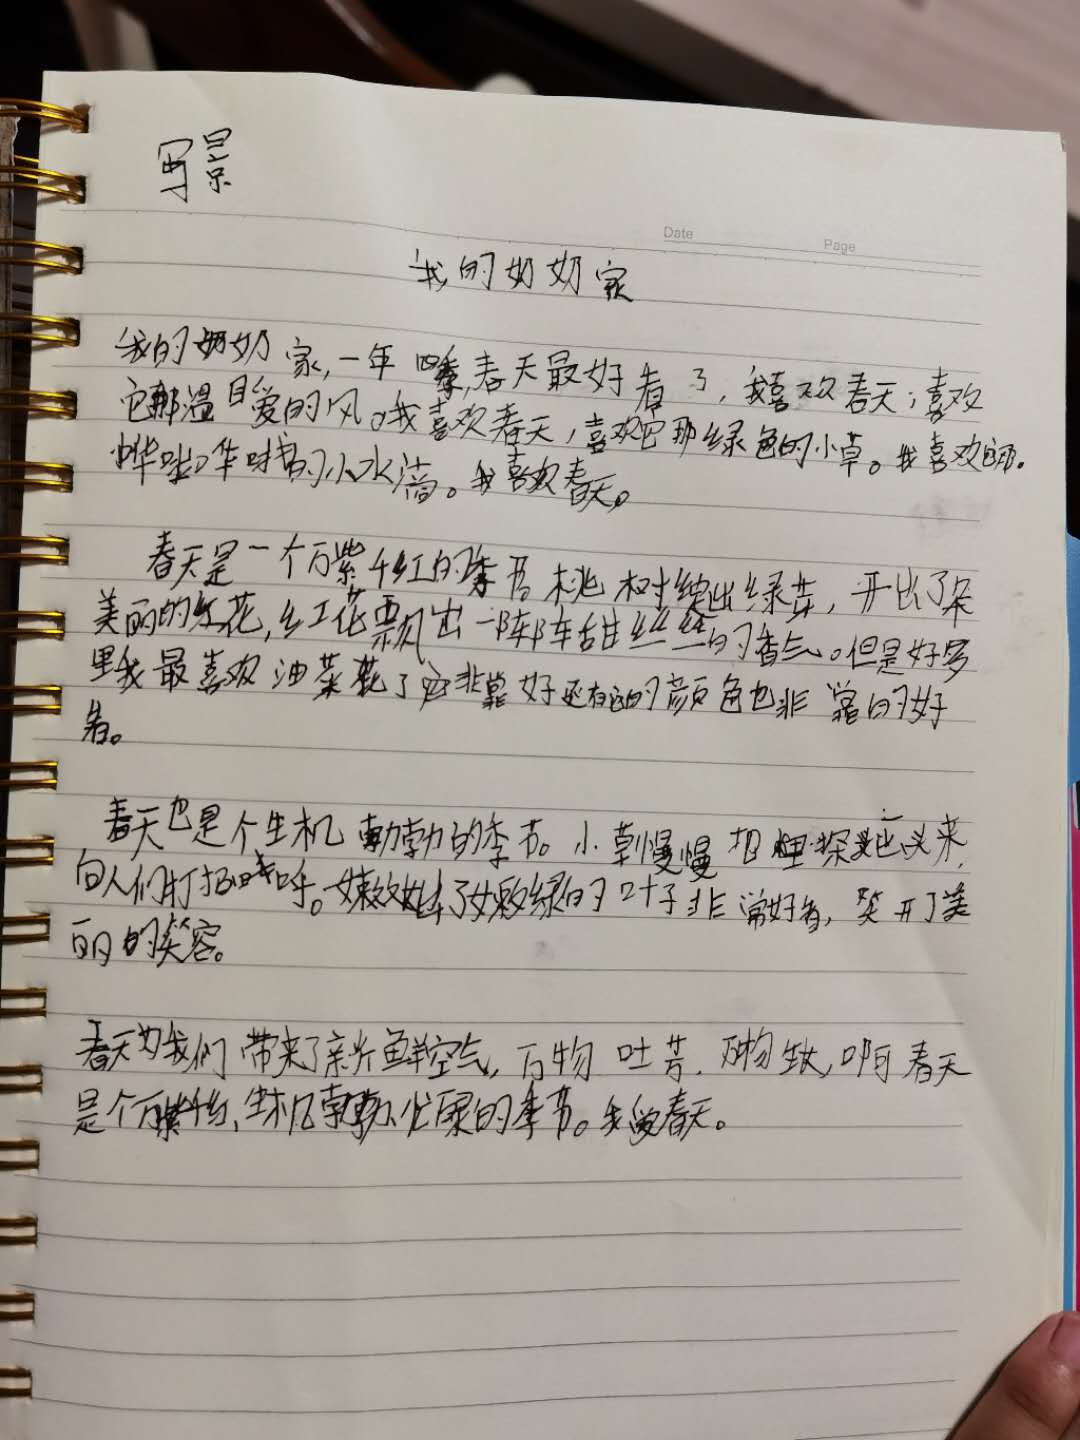 写景
Date Page
我的奶奶家
我的奶奶家,一年四季,春天最好看了,我喜欢春天;喜欢
它那温暖的风。我喜欢春天,喜欢它那绿色的小草。我喜欢
哗啦哗啦的小水滴。我喜欢春天。
春天是一个万紫千红的季节桃树绽出绿芽,开出了朵
美丽的红花,红花飘出一阵阵甜丝丝的香气。但是好多
里我最喜欢油菜花了它非常好还有它的颜色也非常的好
看。
春天也是个生机勃勃的季节。小草慢慢把探出头来,
向人们打招呼。嫩绿的叶子非常好看,笑开了美
丽的笑容。
春天为我们带来了新鲜空气,百物吐芳,万物生长,啊春天
是个万紫千红、生机勃勃、忙碌的季节。我爱春天。